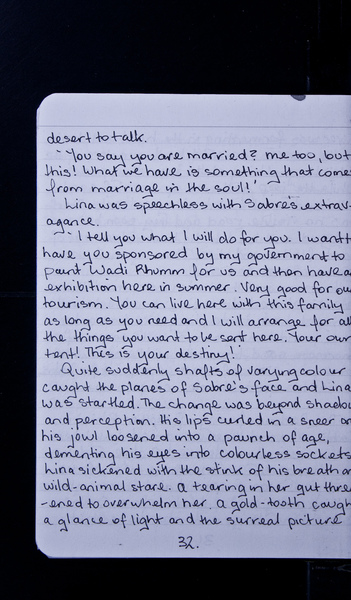 desert to talk.
"You say you are married? me too, but
this! What we have is something that come
from marriage in the soul!"
Lina was speechless with Sabre's extrav-
agance.
"I tell you what I will do for you. I want t
have you sponsored by my government to
paint Wadi Rhumm for us and then have a
exhibition here in summer. Very good for ou
tourism. You can live here with this family
as long as you need and I will arrange for al
the things you want to be sent here. Your own
tent! This is your destiny!"
Quite suddenly shafts of varying colour
caught the planes of Sabre's face and Lina
was startled. The change was beyond shadow
and perception. His lips curled in a sneer an
his jowl loosened into a paunch of age,
dementing his eyes into colourless sockets
Lina sickened with the stink of his breath an
wild-animal stare. A tearing in her gut threa
-ened to overwhelm her. A gold-tooth caugh
a glance of light and the surreal picture
32.